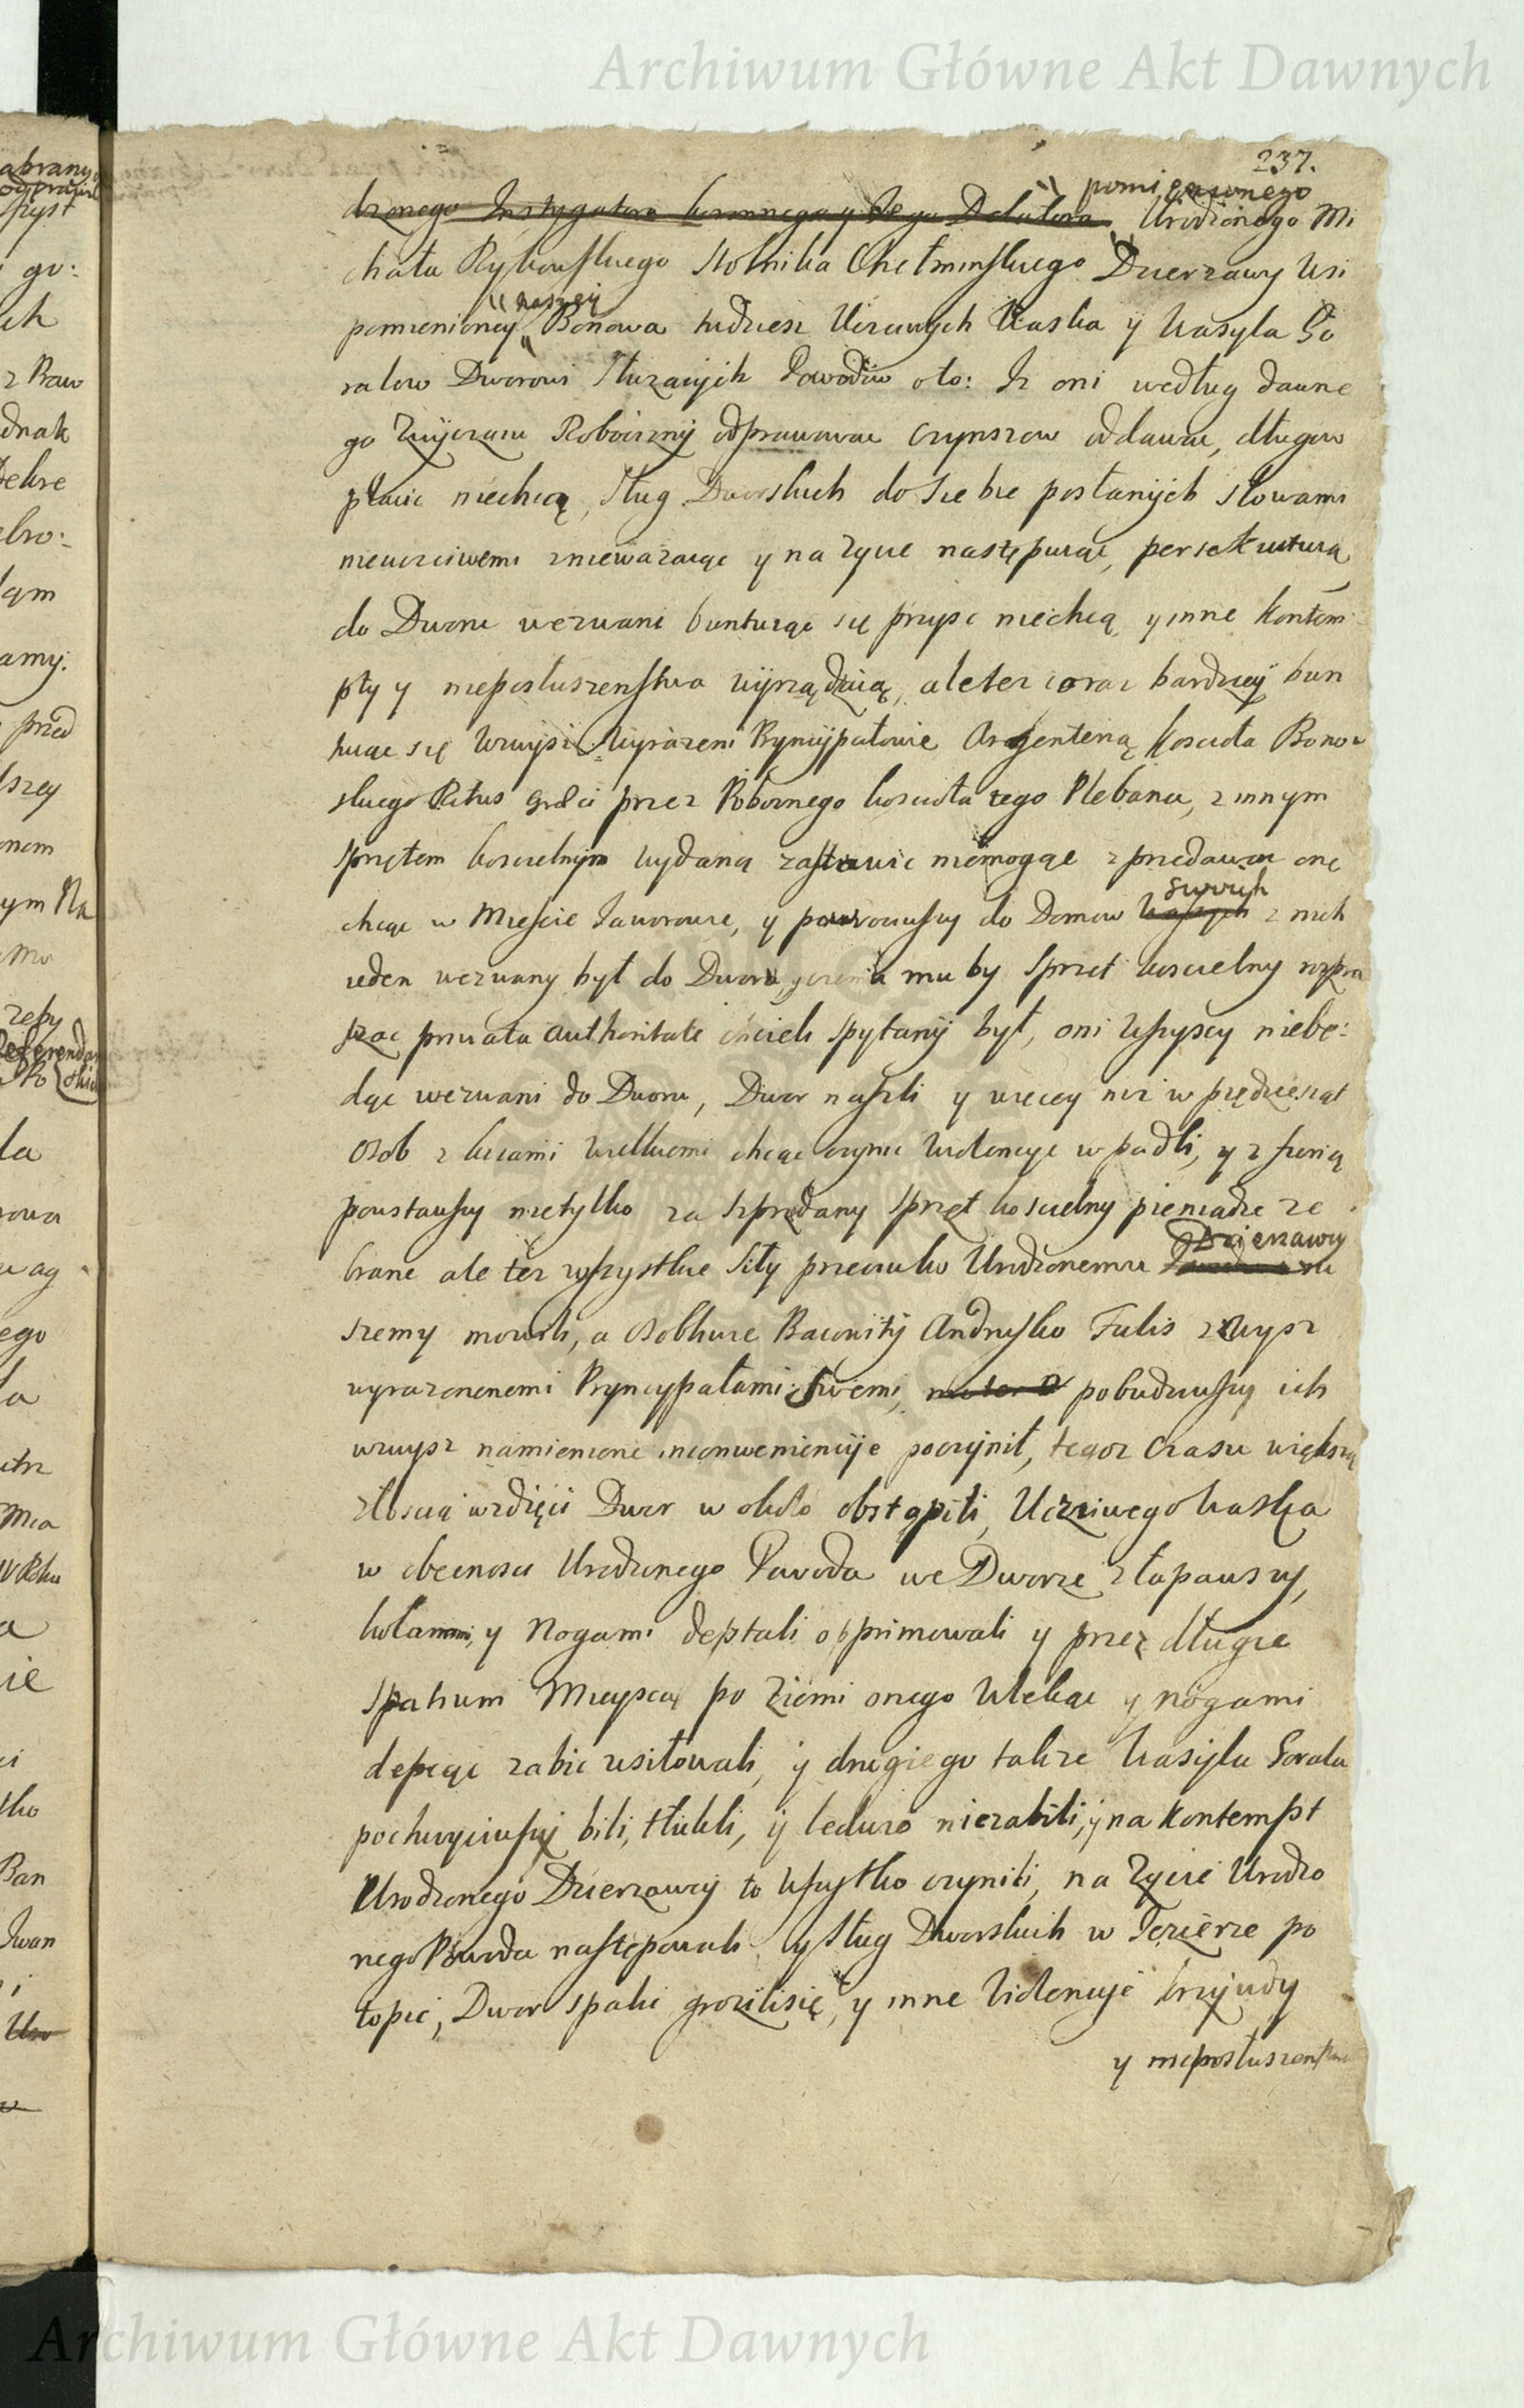 Archiwum Główne Akt Dawnych
237.
pomienionego
dzonego Instygatora koronnego y Jego Delatora Urodzonego Mi
chała Rykowskiego Stolnika Chełminskiego Dzierzawy Wsi
naszey
pomienioney Bonowa tudziesz Uczciwych Waska y Wasyla Go
ralow Dworowi Służących Powodow oto: Iz oni według dawne
go Zwyczaiu Roboczny odprawowac Czynszow oddawac, długow
płacic niechcą, Sług Dworskich do Siebie posłanych słowami
nieuczciwemi zniewazaiąc y na zycie następuiąc,
do Dworu wezwani buntuiąc się przysc niechcą, y inne Kontem
pty y nieposłuszenstwa wyrządzaią, ale tez coraz bardziey bun
tuiąc się wzwysz Wyrazeni Pryncypałowie Argenterią Koscioła Bonow
skiego Ritus Graeci przez Poboznego koscioła tego Plebana, z innym
sprzętem koscielnym wydaną zastawic niemogąc zprzedawac onę
swoich
chcąc w Miescie Jaworowie, y powrociwszy do Domow Waszych z nich
ieden wezwany był do Dworu, y czemu by Sprzęt koscielny rozpra
szac privata authoritate chcieli spytany był, oni wszyscy niebę:
dąc wezwani do Dworu, Dwor naszli y więcey niz w pięcdziesiąt
osob z kiiami wielkiemi chcąc czynic wiolencye wpadli, y z furią
powstawszy nietylko za szprzedany Sprzęt koscielny pieniądze ze
Dzierzawcy
brane ale tez wszystkie Siły przeciwko Urodzonemu na
szemy mowili, a osobliwie Andrusko Fulis z wysz
wyrazonenemi Pryncypałami Swemi, pobudziwszy ich
wzwysz namienione inconweniencyie poczynił, tegoz Czasu większą
złoscią wzdięci Dwor w około obstąpili, Uczciwego Waska
w obecnosci Urodzonego Powoda we Dworze złapawszy,
kolanami, y Nogami deptali opprimowali y przez długie
spatium Mieysca po Ziemi onego Wlekąc y nogami
depcąc zabic usiłowali, y drugiego takze Wasyla Gorala
pochwyciwszy bili, tłukli, y ledwo niezabili, y na Kontempt
Urodzonego Dzierzawcy to wszystko czynili, na Zycie Urodzo
nego Powoda następowali y Sług Dworskich w Jezierze po
topic, Dwor spalic grozilisię, y inne Violencye krzywdy
y nieposłuszenstwa
Archiwum Główne Akt Dawnych